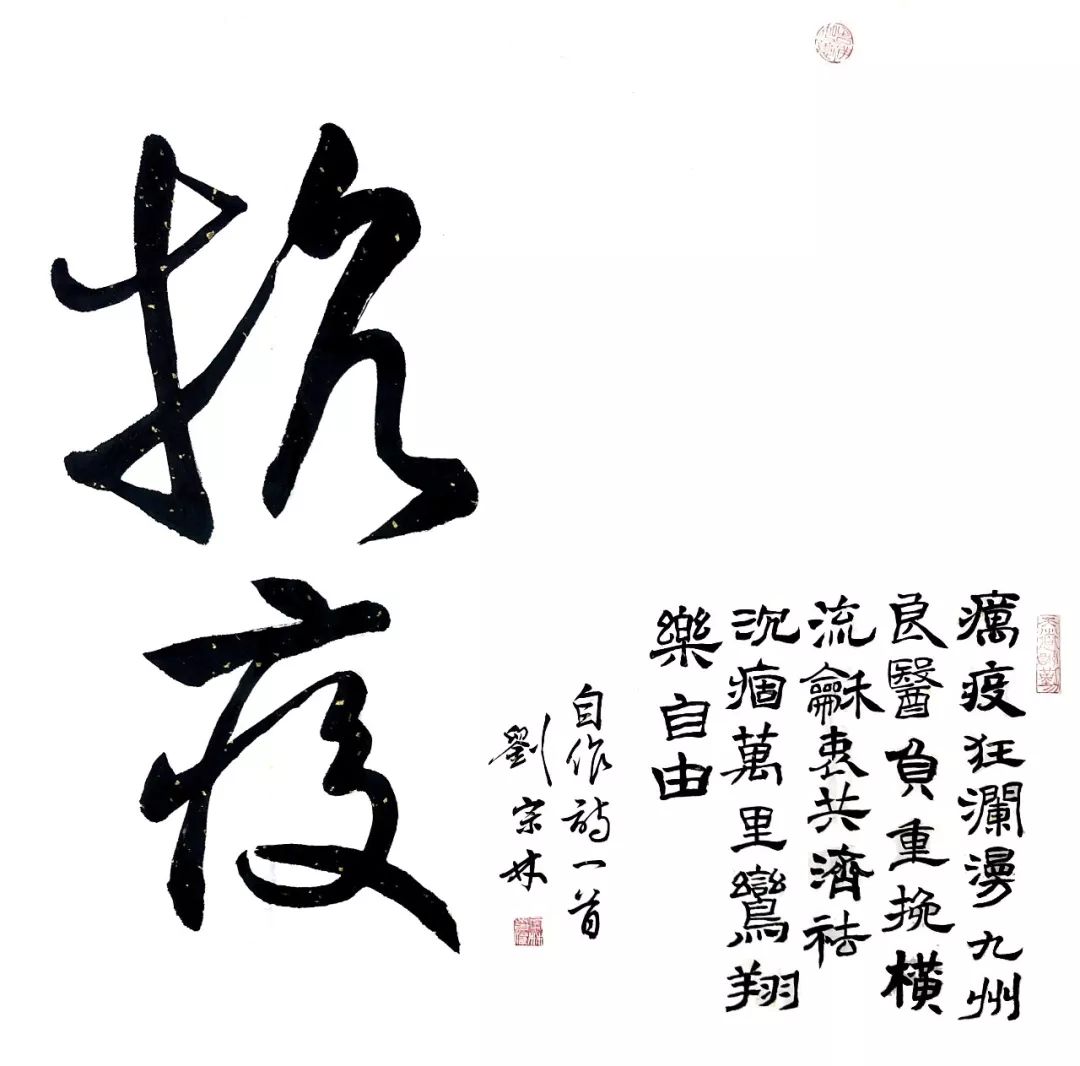 癘疫狂瀾漫九州
良醫負重挽橫
流龢衷共濟祛
沉痼萬里鸞翔
樂自由
自作詩一首
劉宗林
抗疫